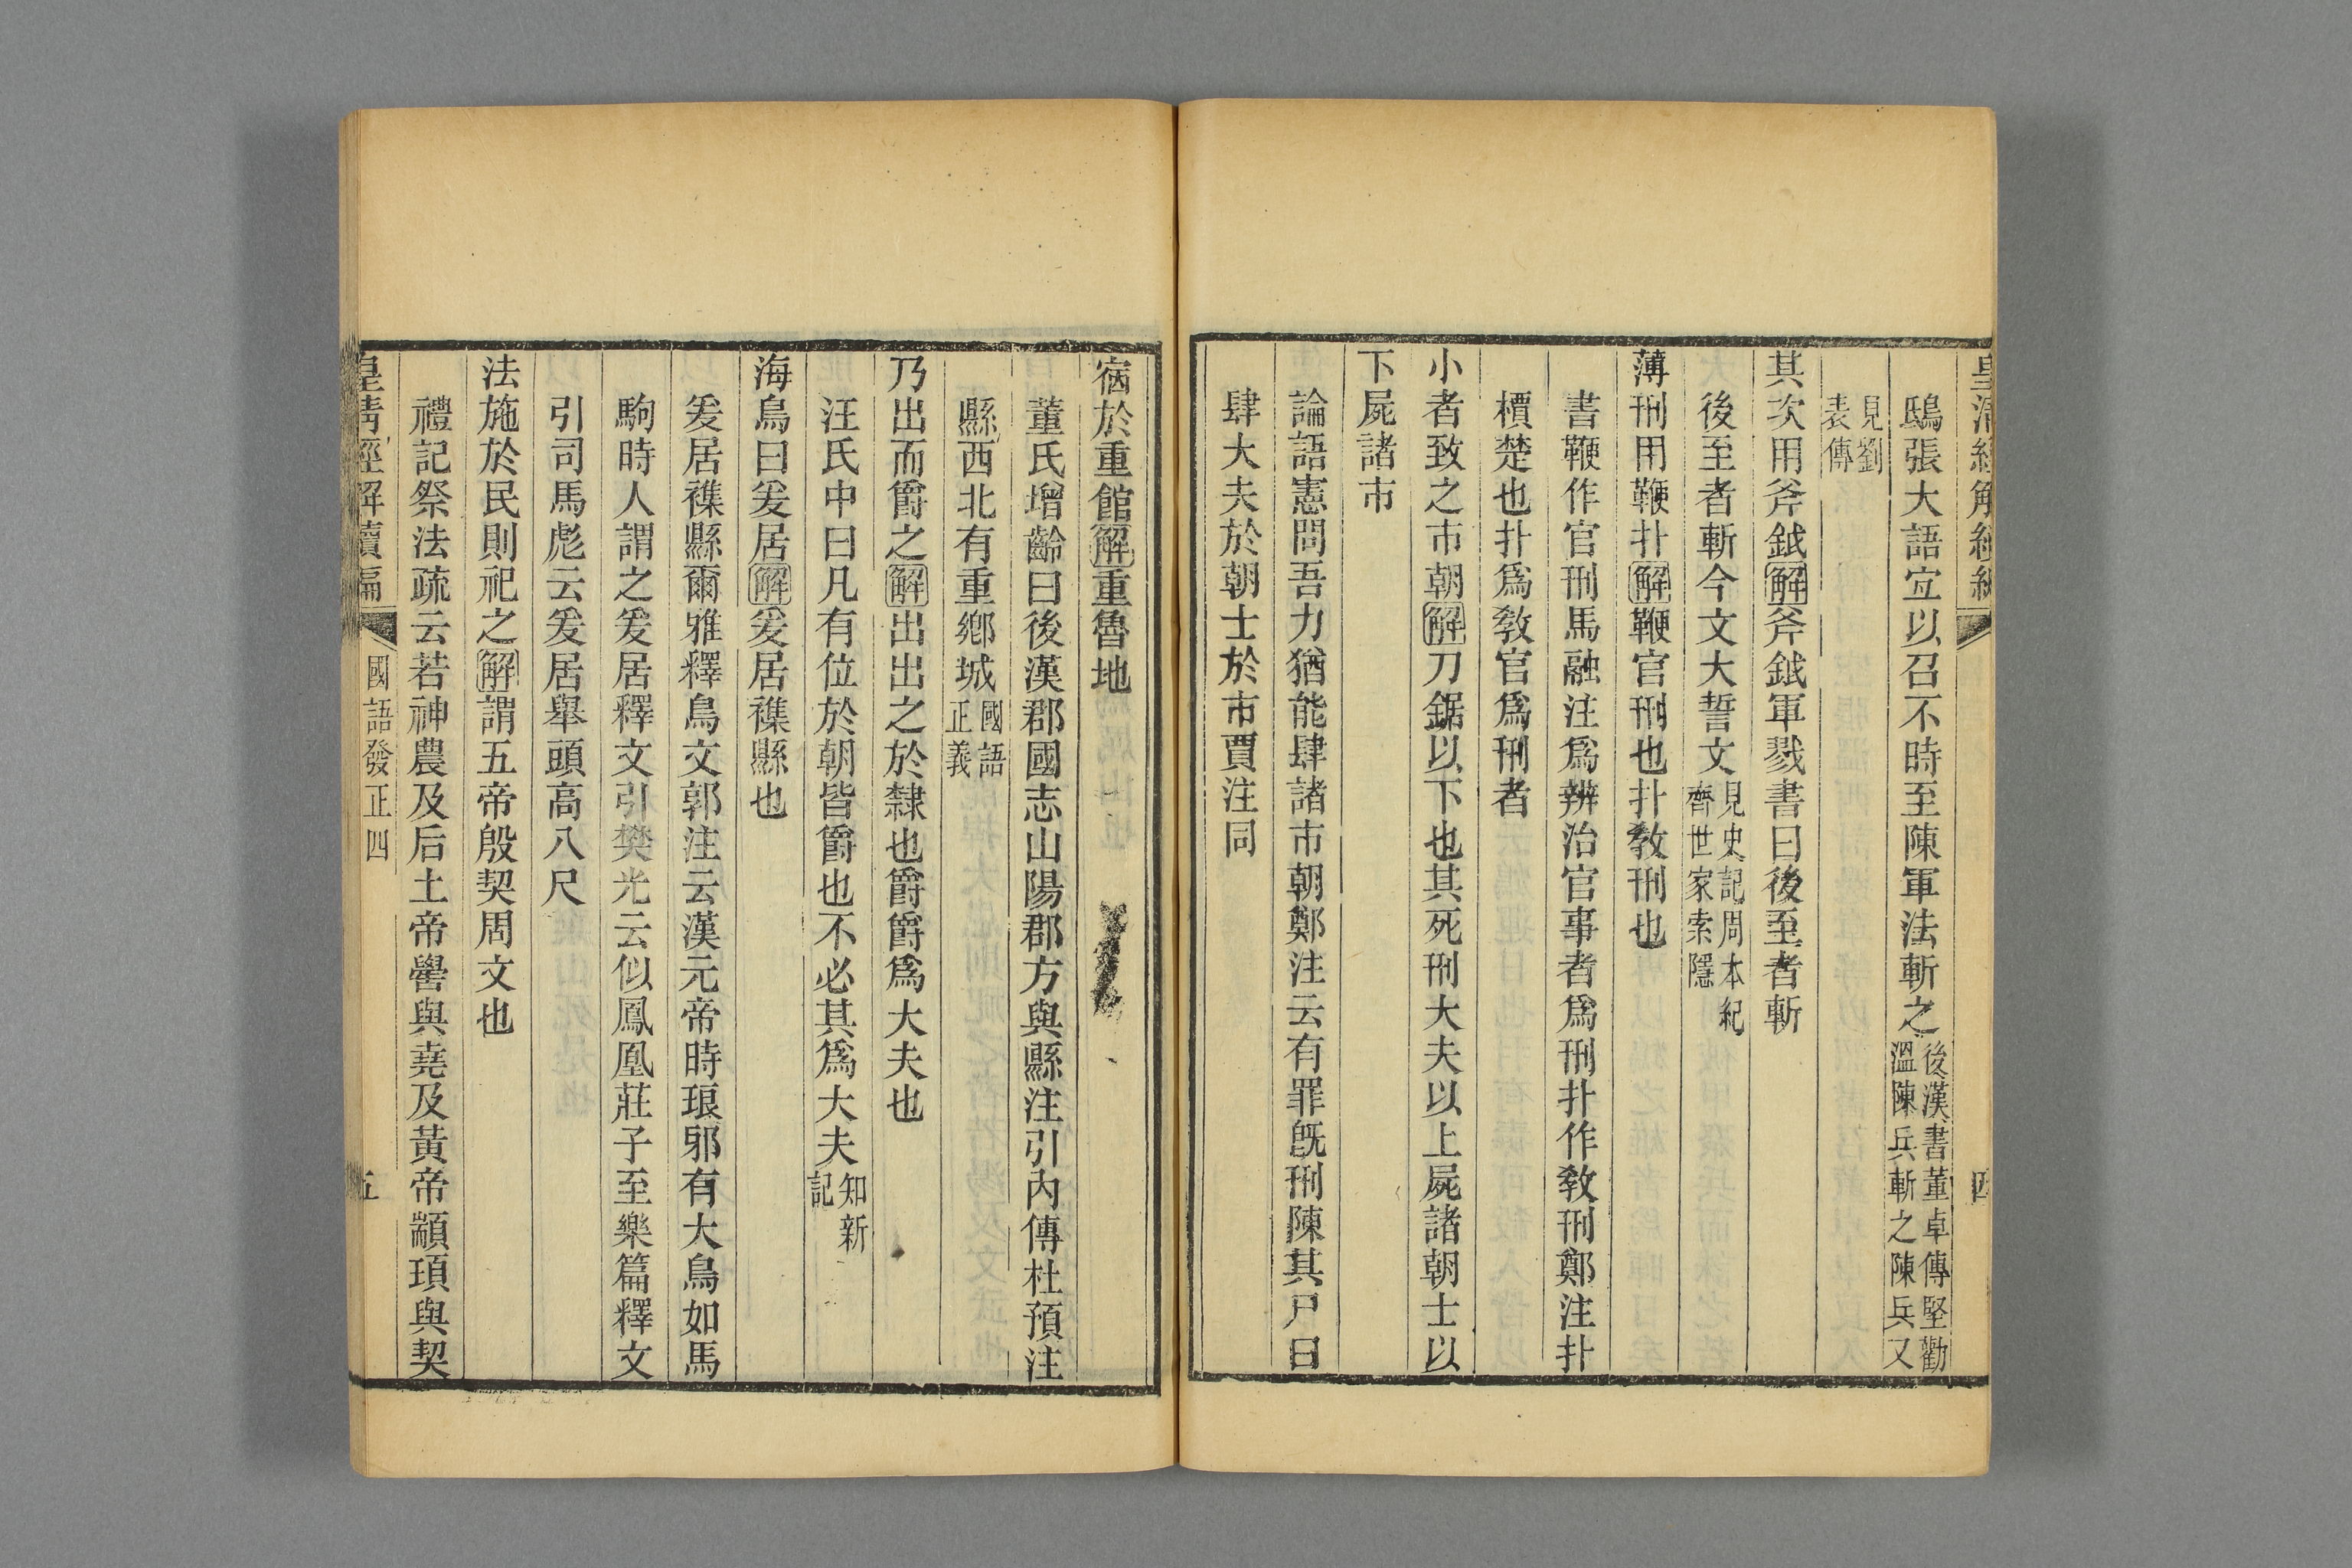 皇清經解續編
四
鴟張大語宜以召不時至陳軍法斬之後漢書董卓傳堅勸溫陳兵斬之陳兵又
見劉表傳
其次用斧鉞解斧鉞軍戮書曰後至者斬
後至者斬今文大誓文見史記周本紀齊世家索隱
薄刑用鞭扑解鞭官刑也扑敎刑也
書鞭作官刑馬融注爲辨治官事者爲刑扑作敎刑鄭注扑
檟楚也扑爲敎官爲刑者
小者致之市朝解刀鋸以下也其死刑大夫以上屍諸朝士以
下屍諸市
論語憲問吾力猶能肆諸市朝鄭注云有罪旣刑陳其尸曰
肆大夫於朝士於市賈注同
宿於重館解重魯地
董氏增齡曰後漢郡國志山陽郡方與縣注引內傳杜預注
縣西北有重鄉城國語正義
乃出而爵之解出出之於隸也爵爵爲大夫也
汪氏中曰凡有位於朝皆爵也不必其爲大夫知新記
海鳥曰爰居解爰居襍縣也
爰居襍縣爾雅釋鳥文郭注云漢元帝時琅邪有大鳥如馬
駒時人謂之爰居釋文引樊光云似鳳凰莊子至樂篇釋文
引司馬彪云爰居舉頭高八尺
法施於民則祀之解謂五帝殷契周文也
禮記祭法疏云若神農及后土帝嚳與堯及黃帝顓頊與契
皇清經解續編
國語發正四
五